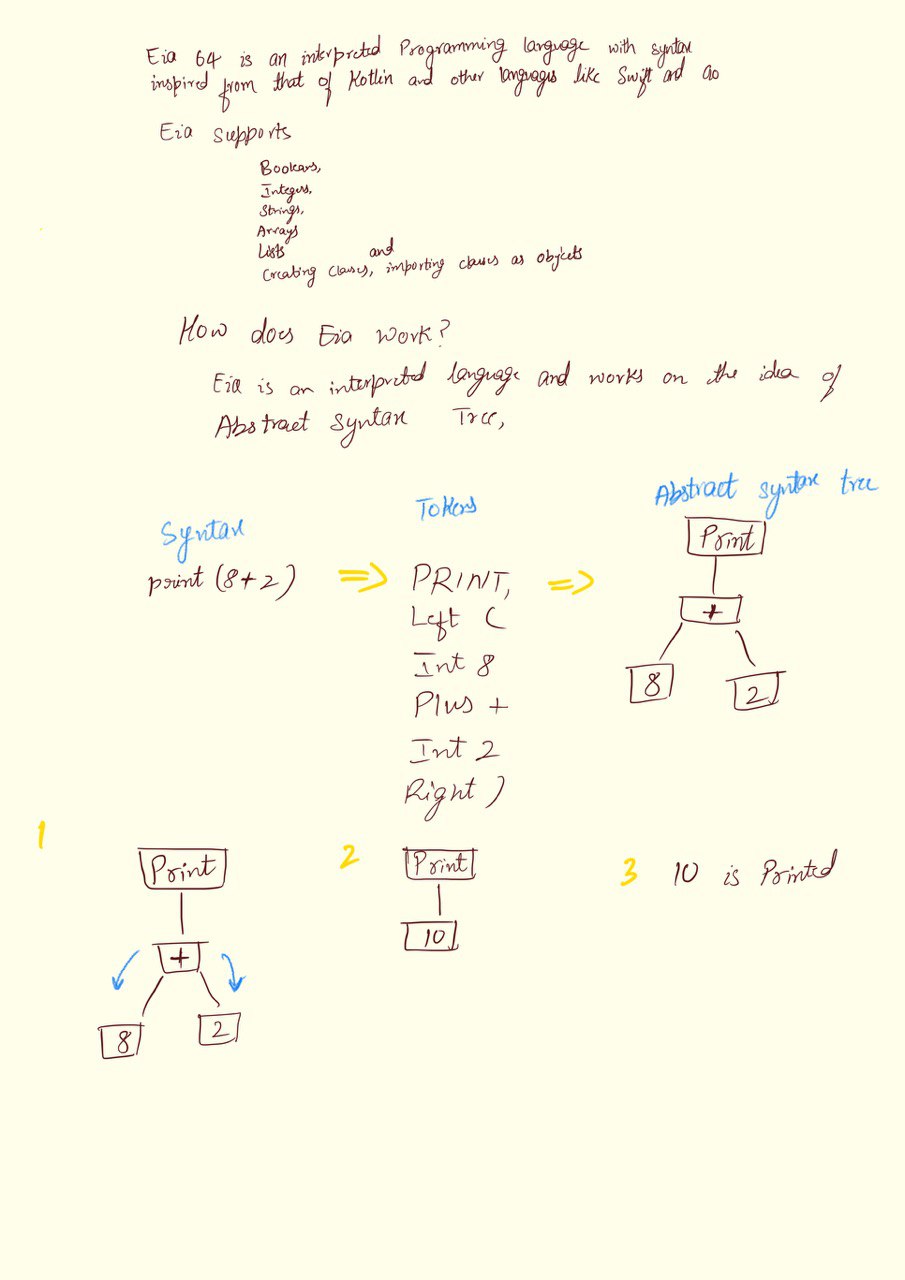 Eia 64 is an interpreted Programming language with syntax
inspired from that of Kotlin and other languages like Swift and Go
Eia supports
Booleans,
Integers,
Strings,
Arrays
Lists and
Creating Classes, importing classes as objects
How does Eia work?
Eia is an interpreted language and works on the idea of
Abstract Syntax Tree,
Syntax
print (8+2)
=>
Tokens
PRINT,
Left (
Int 8
Plus +
Int 2
Right )
=>
Abstract syntax tree
Print
+
8 2
1
Print
+
8 2
2
Print
10
3 10 is Printed